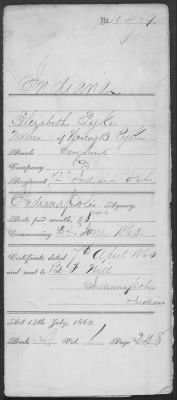 No.
Indiana
Elizabeth Pyke
Mother of Henry B. Pyke
Rank Sergeant
Company
Regiment 12" Indiana Vols
Indianapolis Agency.
Rate per month, $8
Commencing June 1863
Certificate dated 7th April 1864
and sent to
Indianapolis
Indiana
Act 14th July, 1862.
Book Vol. 1 Page 248